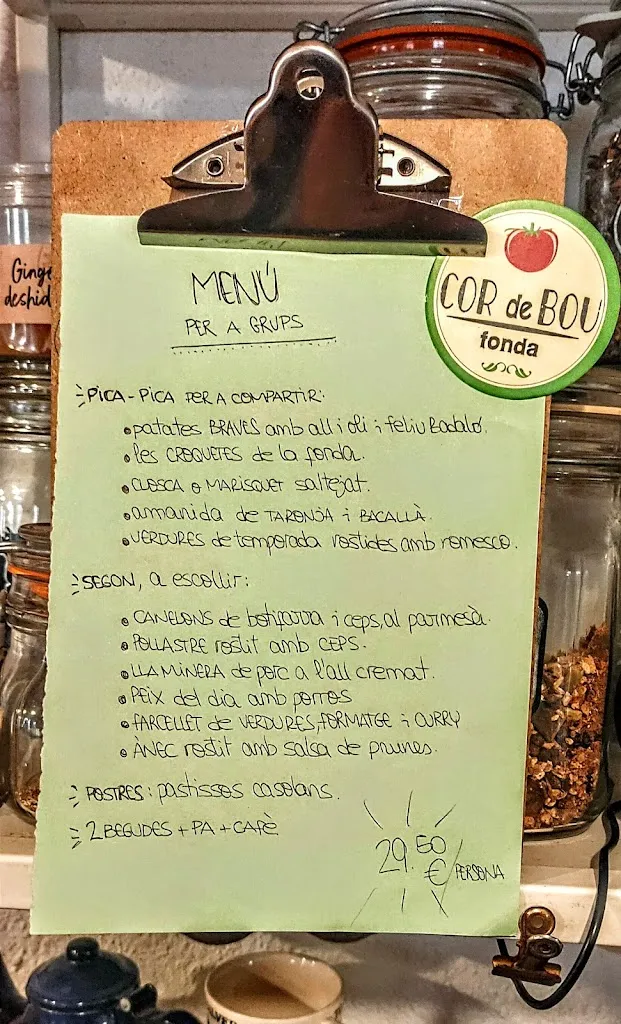 MENÚ
PER A GRUPS
PICA-PICA PER A COMPARTIR:
patates BRAVES amb all i oli i feliu Badaló.
les CROQUETES de la fonda.
CLOSCA o MARISQUET saltejat.
amanida de TARONJA i BACALLÀ.
VERDURES de temporada rostides amb romesco.
SEGON, a escollir:
CANELONS de botifarra i ceps, al parmesà.
POLLASTRE rostit amb CEPS.
LLAMINERA de porc a l'all cremat.
PEIX del dia amb porros
FARCELLET de VERDURES, FORMATGE i CURRY
ÀNEC rostit amb salsa de prunes.
POSTRES: pastissos casolans.
2 BEGUDES + PA + CAFÈ
29.50 €/PERSONA
COR de BOU
fonda
Ginge
deshid